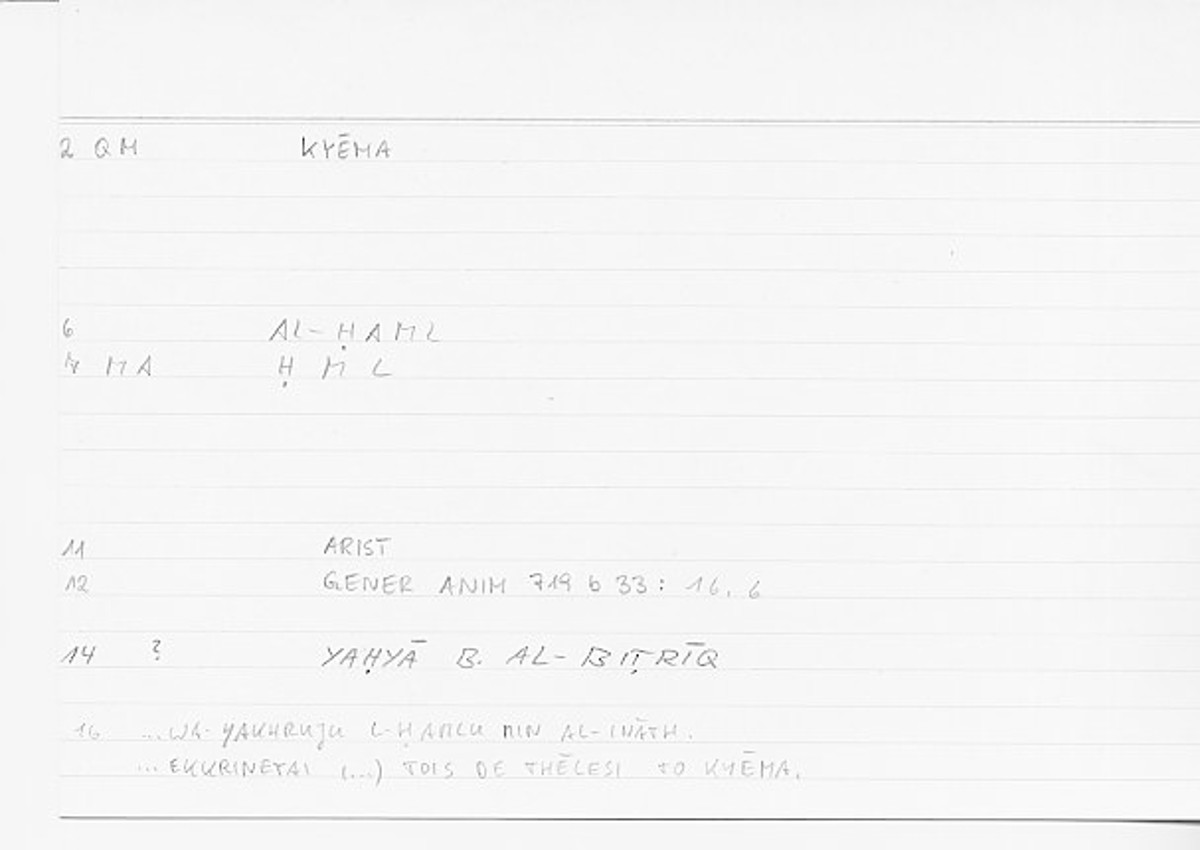 2 QM KYĒMA
6 AL-ḤAML
MA Ḥ M L
11 ARIST
12 GENER ANIM 719 b 33: 16, 6
14 ? YAḤYĀ B. AL-BIṬRĪQ
16 ...WA-YAKHRUJU L-ḤAMLU MIN AL-INĀTH.
... EKKRINETAI (...) TOIS DE THĒLESI TO KYĒMA.